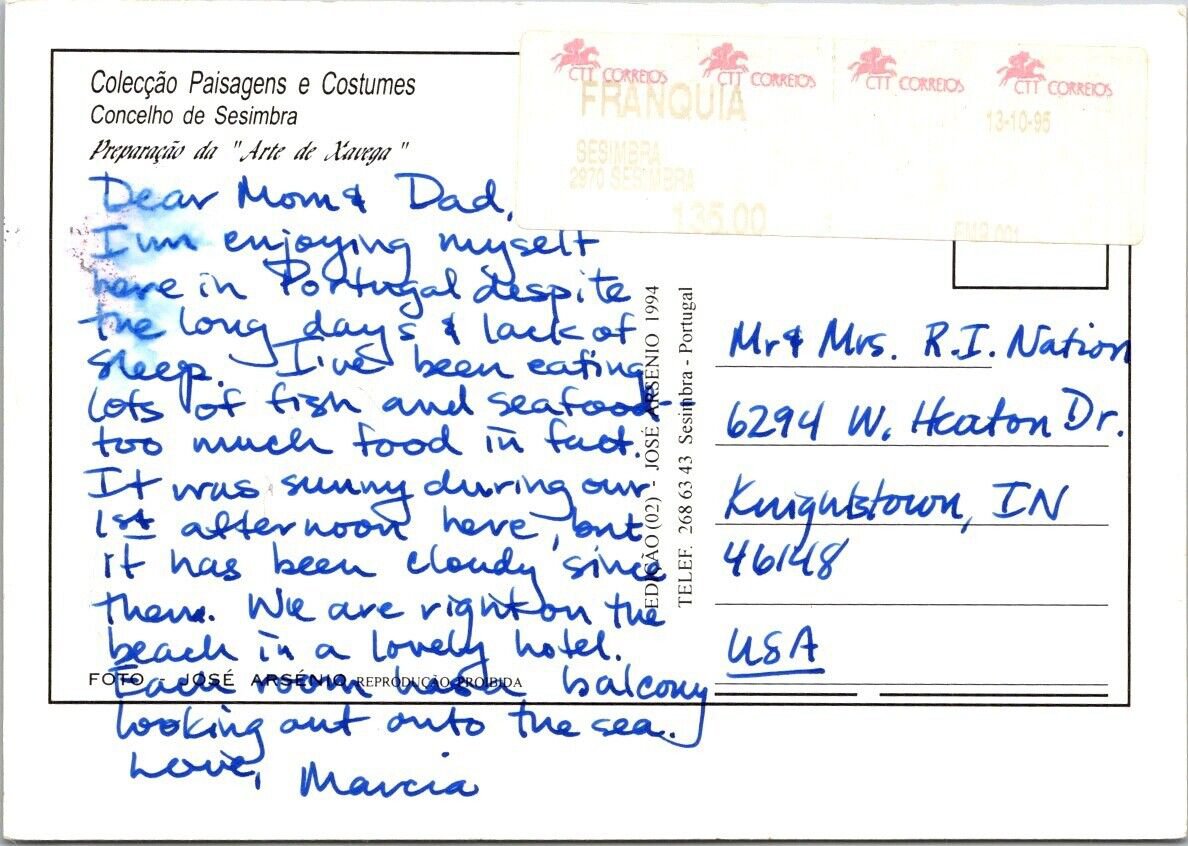 Colecção Paisagens e Costumes
Concelho de Sesimbra
Preparação da "Arte de Xavega"
CTT CORREIOS CTT CORREIOS CTT CORREIOS CTT CORREIOS
FRANQUIA
13-10-95
SESIMBRA
2970 SESIMBRA
135.00
Dear Mom & Dad,
I'm enjoying myself
here in Portugal despite
the long days & lack of
sleep. I've been eating
lots of fish and seafood-
too much food in fact.
It was sunny during our
1st afternoon here, but
it has been cloudy since
then. We are right on the
beach in a lovely hotel.
Each room has a balcony
looking out onto the sea.
Love, Marcia
EDIÇÃO (02) - JOSÉ ARSÉNIO 1994
TELEF. 268 63 43 Sesimbra - Portugal
Mr & Mrs. R.I. Nation
6294 W. Heaton Dr.
Knightstown, IN
46148
USA
FOTO - JOSÉ ARSÉNIO REPRODUÇÃO PROIBIDA